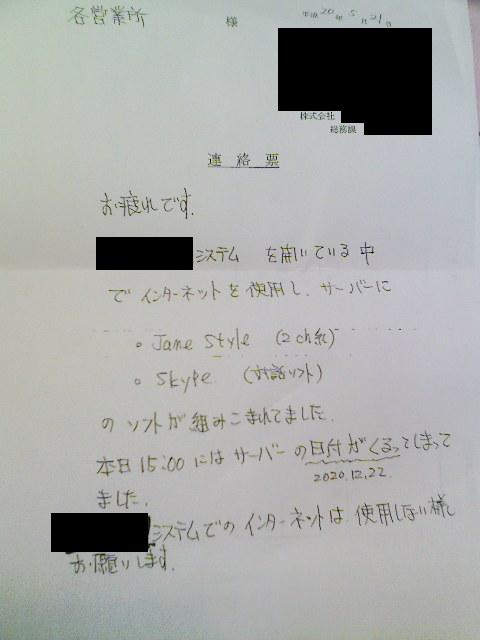 各営業所 様
平成20年5月21日
株式会社
総務課
連絡票
お疲れです.
システム を開いている中
で インターネットを使用し、サーバーに
。Jane Style (2ch系)
。Skype (対話ソフト)
の ソフトが組みこまれてました.
本日 15:00には サーバーの日付がくるってしまって
2020.12.22.
ました.
システムでの インターネットは 使用しない様
お願いします.